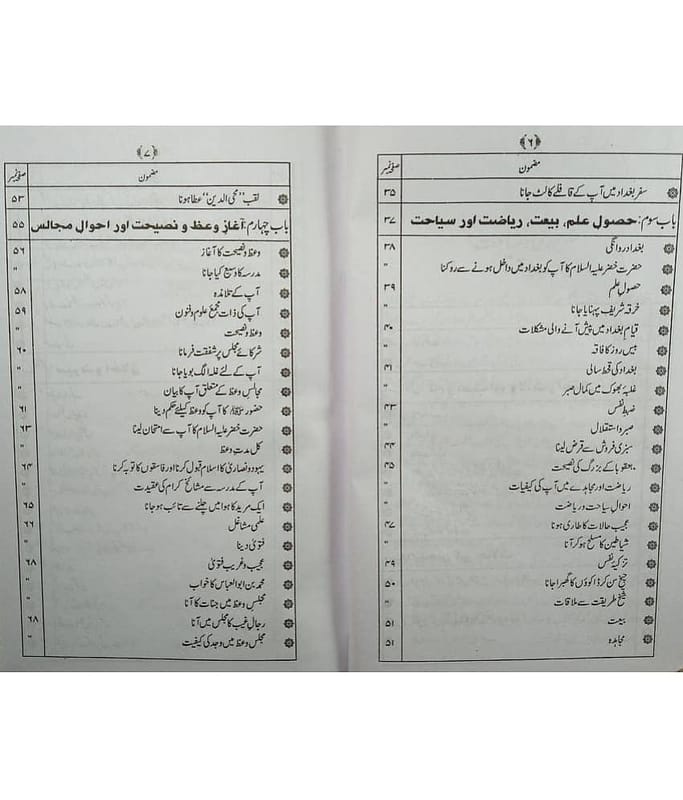 ﴿۶﴾
مضمون صفحہ نمبر
سفر بغداد میں آپ کے قافلے کا لٹ جانا ۳۵
باب سوم: حصولِ علم، بیعت، ریاضت اور سیاحت ۳۷
بغداد روانگی ۳۸
حضرت خضر علیہ السلام کا آپ کو بغداد میں داخل ہونے سے روکنا "
حصولِ علم ۳۹
خرقہ شریف پہنایا جانا "
قیامِ بغداد میں پیش آنے والی مشکلات ۴۰
بیس روز کا فاقہ "
بغداد کی قحط سالی ۴۱
غلبۂ بھوک میں کمالِ صبر "
ضبطِ نفس ۴۳
صبر و استقلال "
سبزی فروش سے قرض لینا ۴۴
بعقوبا کے بزرگ کی نصیحت ۴۵
ریاضت اور مجاہدے میں آپ کی کیفیات "
احوالِ سیاحت و ریاضت "
عجیب حالات کا طاری ہونا ۴۷
شیاطین کا مسلح ہو کر آنا "
تزکیۂ نفس ۴۹
چیخ سن کر ڈاکوؤں کا گھبرا جانا ۵۰
شیخِ طریقت سے ملاقات "
بیعت ۵۱
مجاہدہ ۵۱
﴿۷﴾
مضمون صفحہ نمبر
لقب "محی الدین" عطا ہونا ۵۳
باب چہارم: آغازِ وعظ و نصیحت اور احوالِ مجالس ۵۵
وعظ و نصیحت کا آغاز ۵۶
مدرسہ کا وسیع کیا جانا "
آپ کے تلامذہ ۵۸
آپ کی ذات مجمع علوم و فنون ۵۹
وعظ و نصیحت "
شرکائے مجلس پر شفقت فرمانا ۶۰
آپ کے لئے غلہ الگ بویا جانا "
مجالسِ وعظ کے متعلق آپ کا بیان "
حضور ﷺ کا آپ کو وعظ کیلئے حکم دینا ۶۱
حضرت خضر علیہ السلام کا آپ سے امتحان لینا ۶۳
کل مدتِ وعظ "
یہود و نصاریٰ کا اسلام قبول کرنا اور فاسقوں کا توبہ کرنا ۶۴
آپ کے مدرسہ سے مشائخ کرام کی عقیدت "
ایک مرید کا ہوا میں چلنے سے تائب ہو جانا ۶۵
علمی مشاغل ۶۶
فتویٰ دینا "
عجیب و غریب فتویٰ ۶۸
محمد بن ابو العباس کا خواب "
مجلسِ وعظ میں جنات کا آنا "
رجالِ غیب کا مجلس میں آنا ۶۸
مجلسِ وعظ میں وجد کی کیفیت "